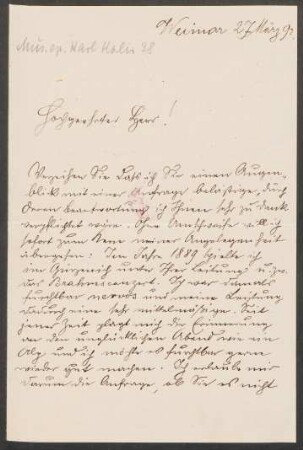 Weimar 27 März 9
Mus. ep. Karl Kolu 38
Hochgeehrter Herr!
Verzeihen Sie daß ich Sie einen Augen-
blick mit einer Anfrage belästige, durch
deren Beantwortung ich Ihnen sehr zu Dank
verpflichtet wäre. Ohne Umschweife will ich
sofort zum Kern meiner Angelegenheit
übergehen: Im Jahre 1889 spielte ich
im Gürzenich unter Ihrer Leitung u. zw.
das Brahmsconzert. Ich war damals
furchtbar nervös und meine Leistung
dadurch eine sehr mittelmäßige. Seit
jener Zeit plagt mich die Erinnerung
an den unglücklichen Abend wie ein
Alp und ich möchte es furchtbar gern
wieder gut machen. Ich erlaube mir
darum die Anfrage, ob Sie es nicht